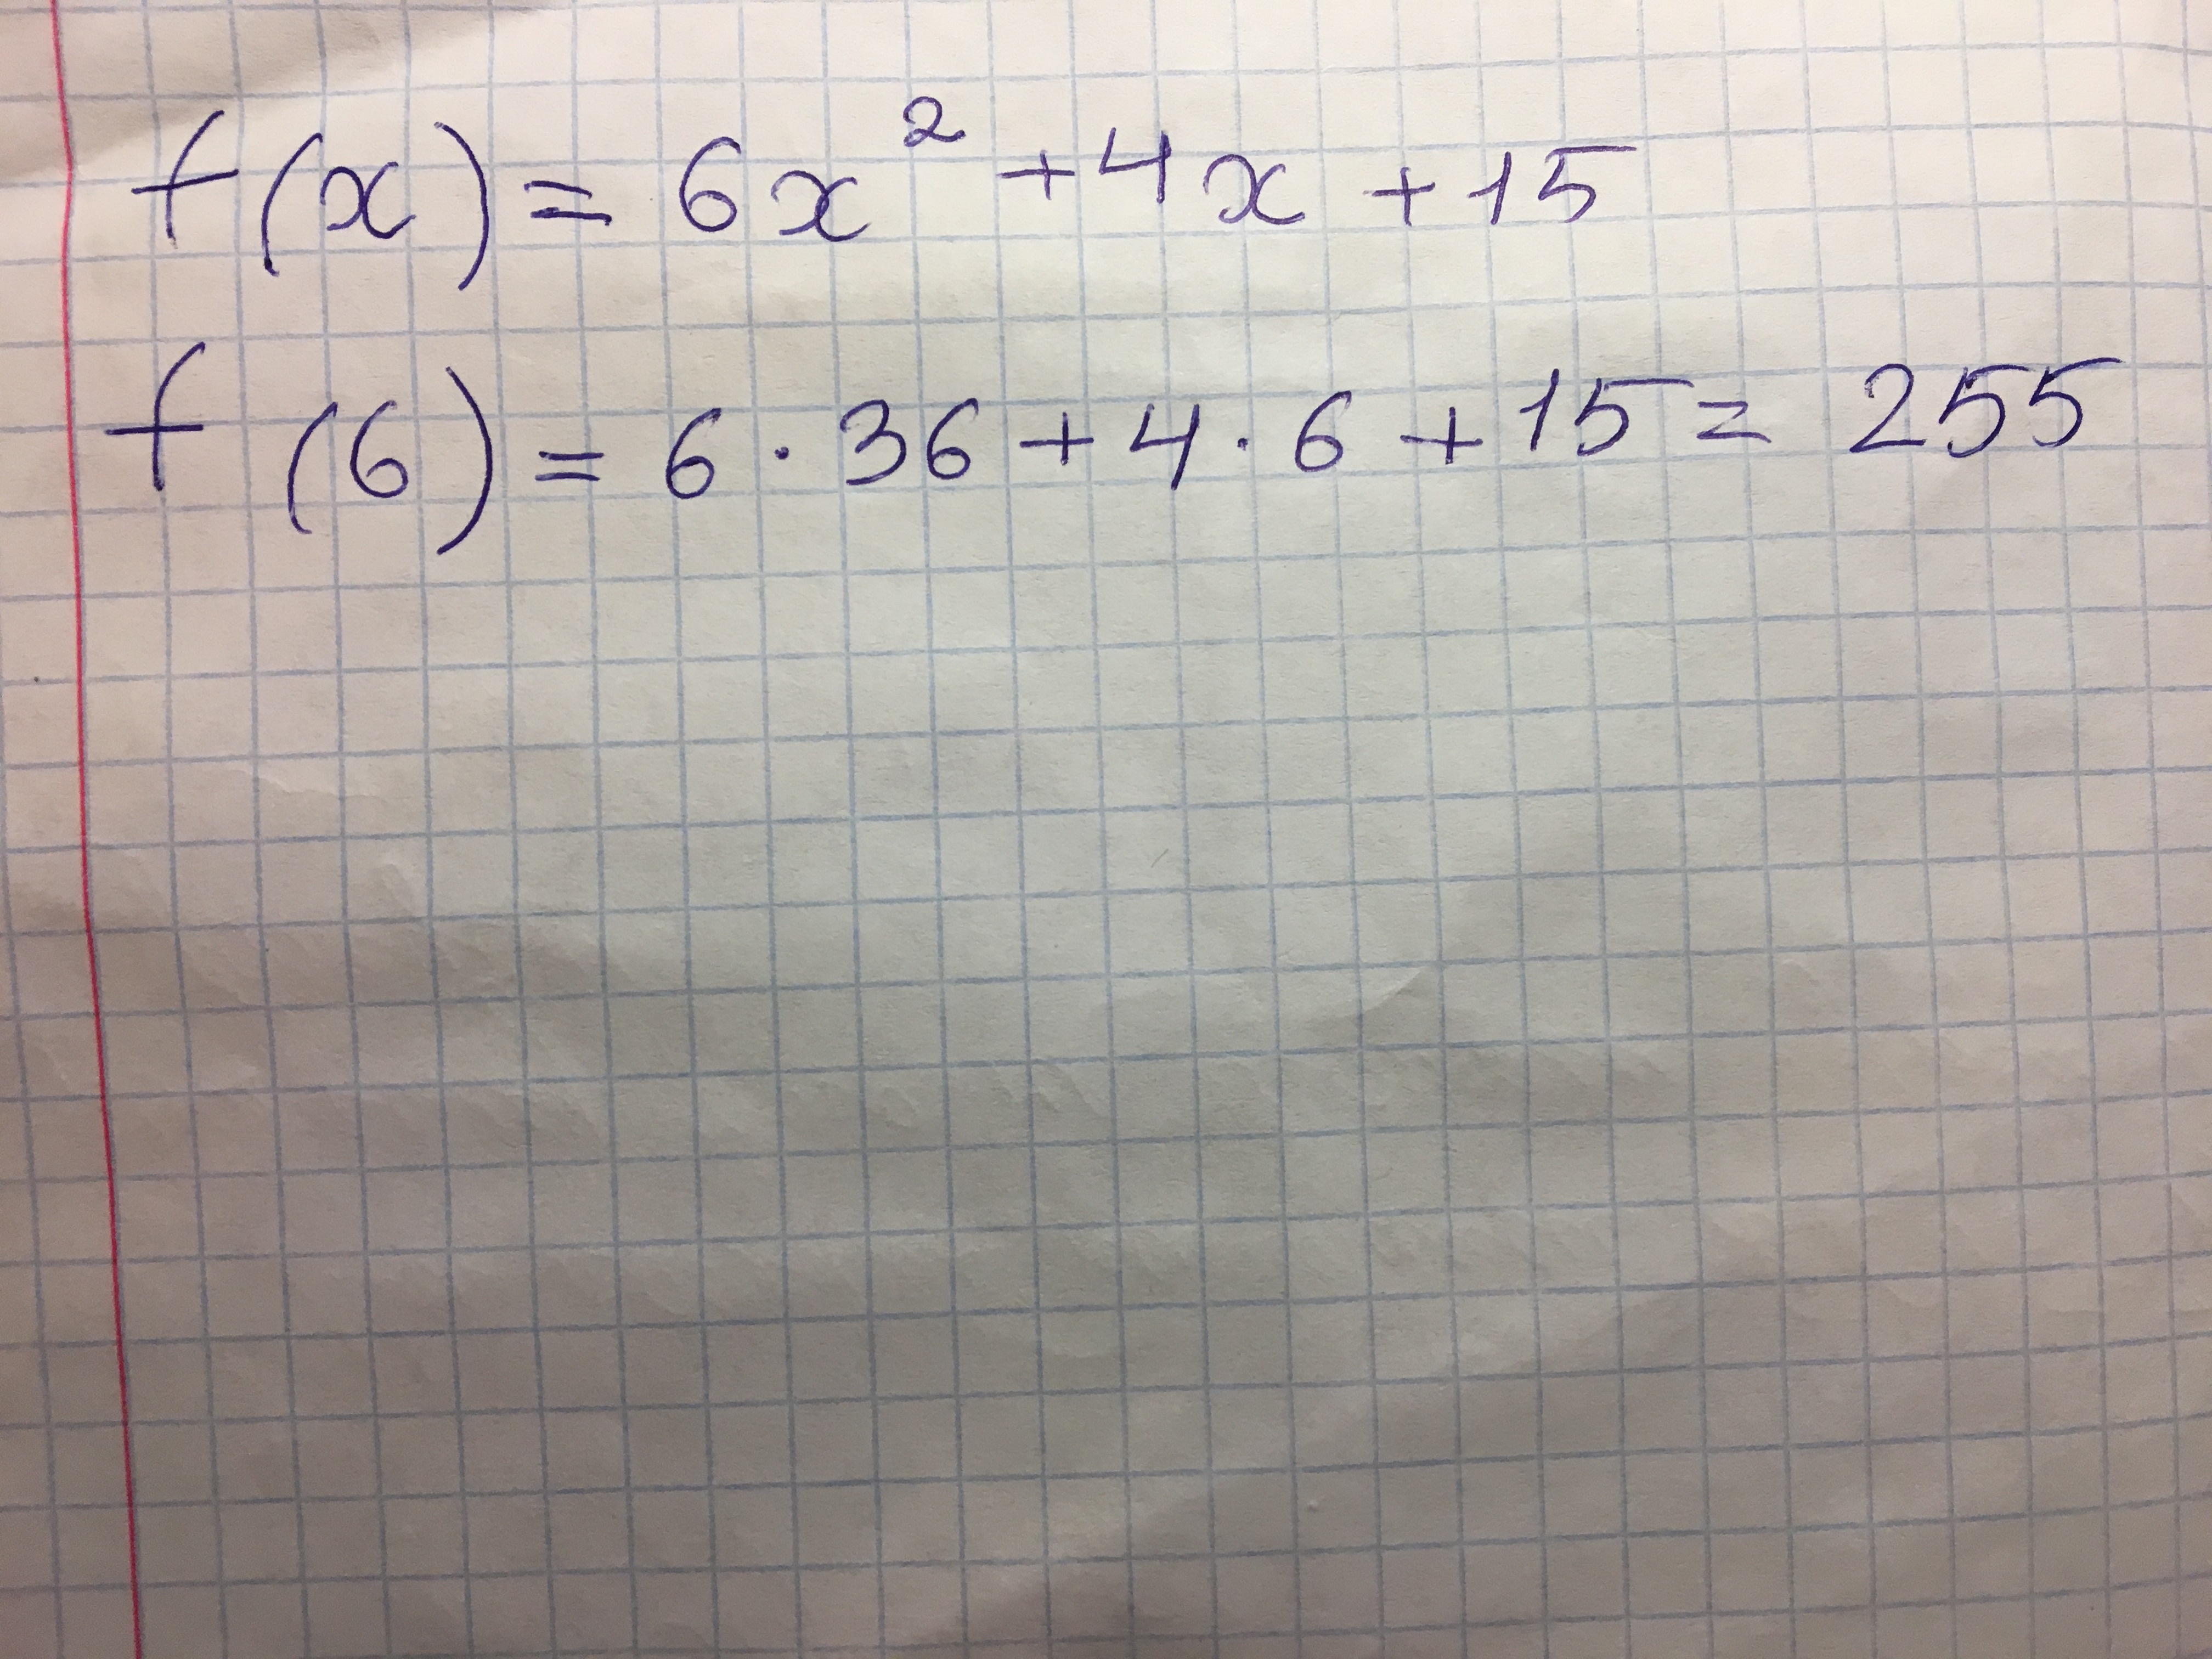 f(x) = 6x² + 4x + 15
f(6) = 6 · 36 + 4 · 6 + 15 = 255